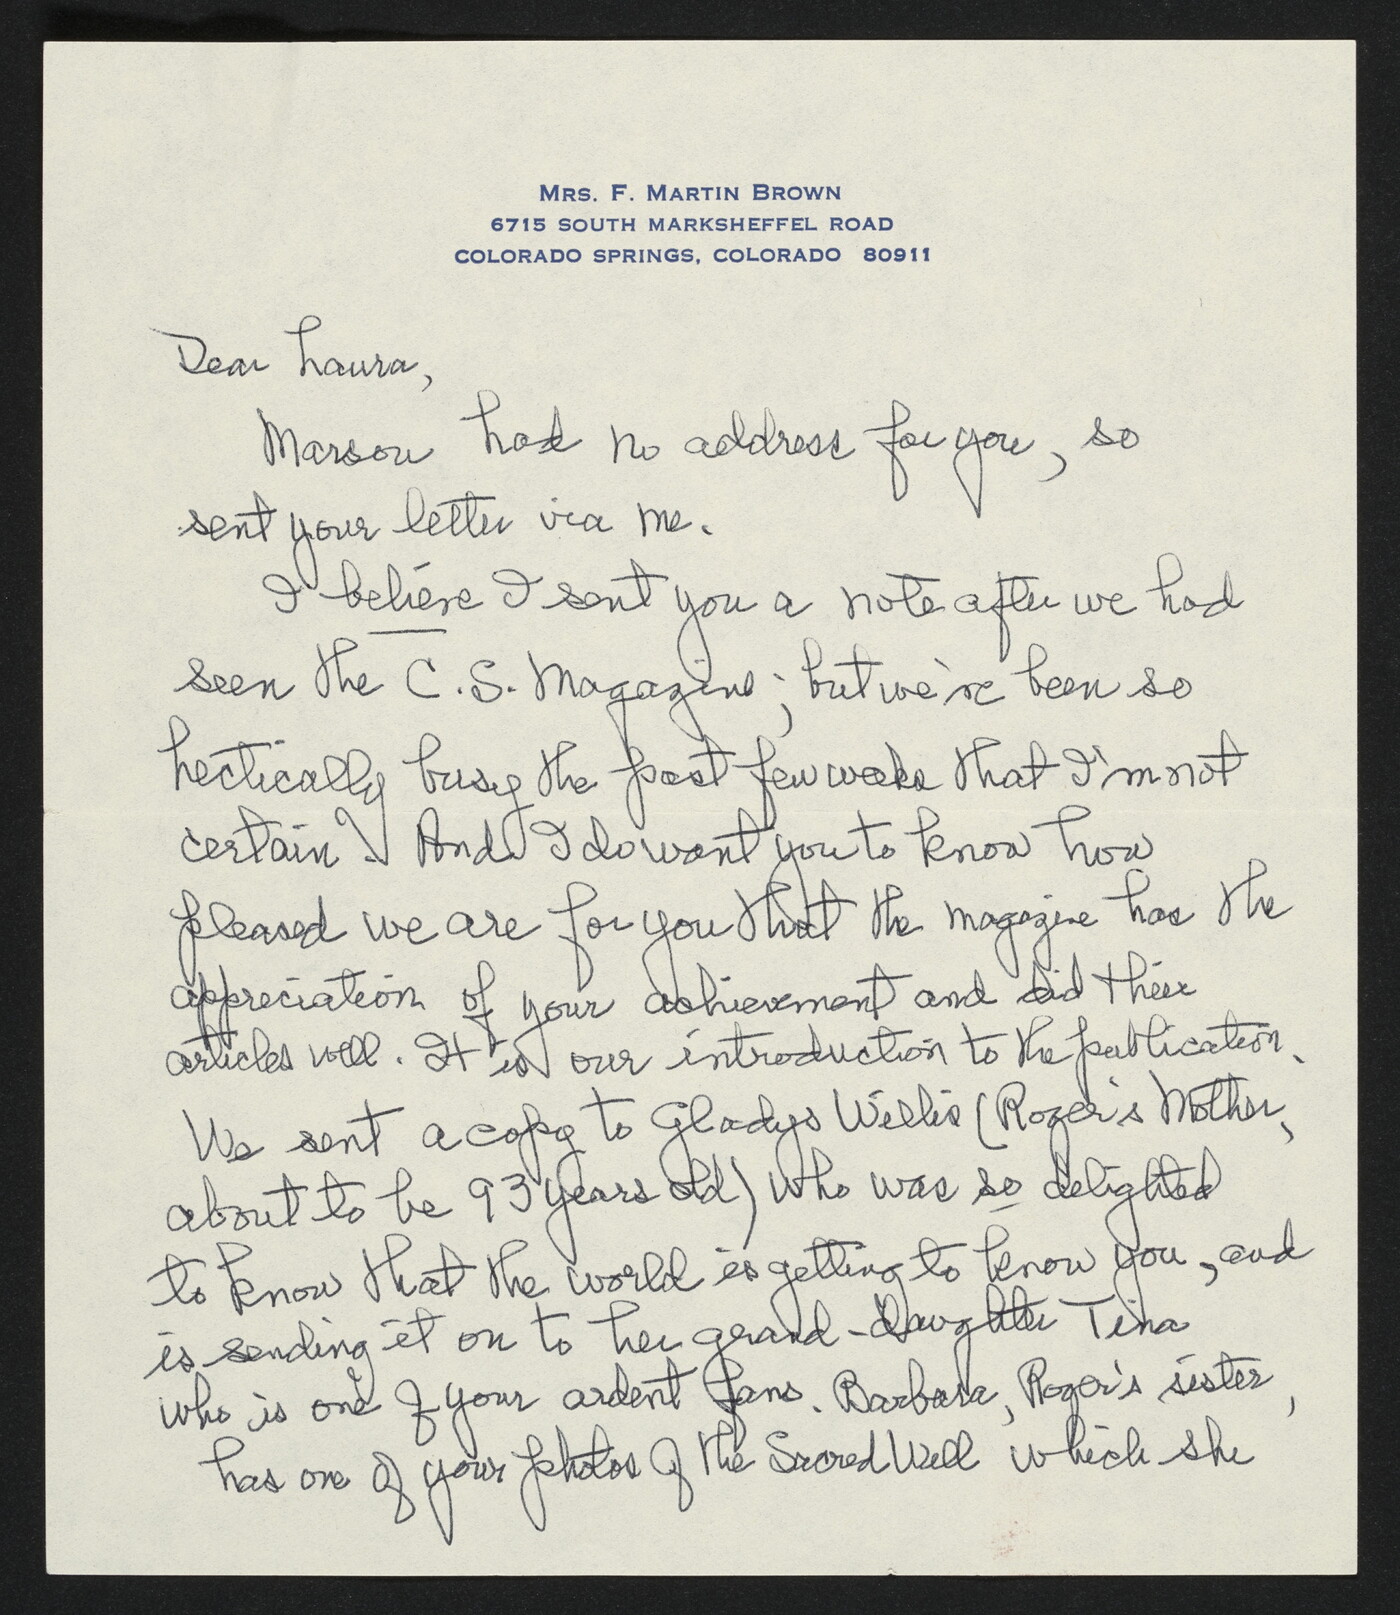 MRS. F. MARTIN BROWN
6715 SOUTH MARKSHEFFEL ROAD
COLORADO SPRINGS, COLORADO 80911
Dear Laura,
had no address for you, so
sent your letter via me.
I believe I sent you a note after we had
seen the C.S. Magazine; but we've been so
hectically busy the past few weeks that I'm not
certain! And I do want you to know how
pleased we are for you that the magazine has the
appreciation of your achievement and did their
articles well. It is our introduction to the publication.
We sent a copy to Gladys Willis (Roger's Mother,
about to be 93 years old) who was so delighted
to know that the world is getting to know you, and
is sending it on to her grand-daughter Tina
who is one of your ardent fans. Barbara, Roger's sister,
has one of your photos of the Sacred Well which she